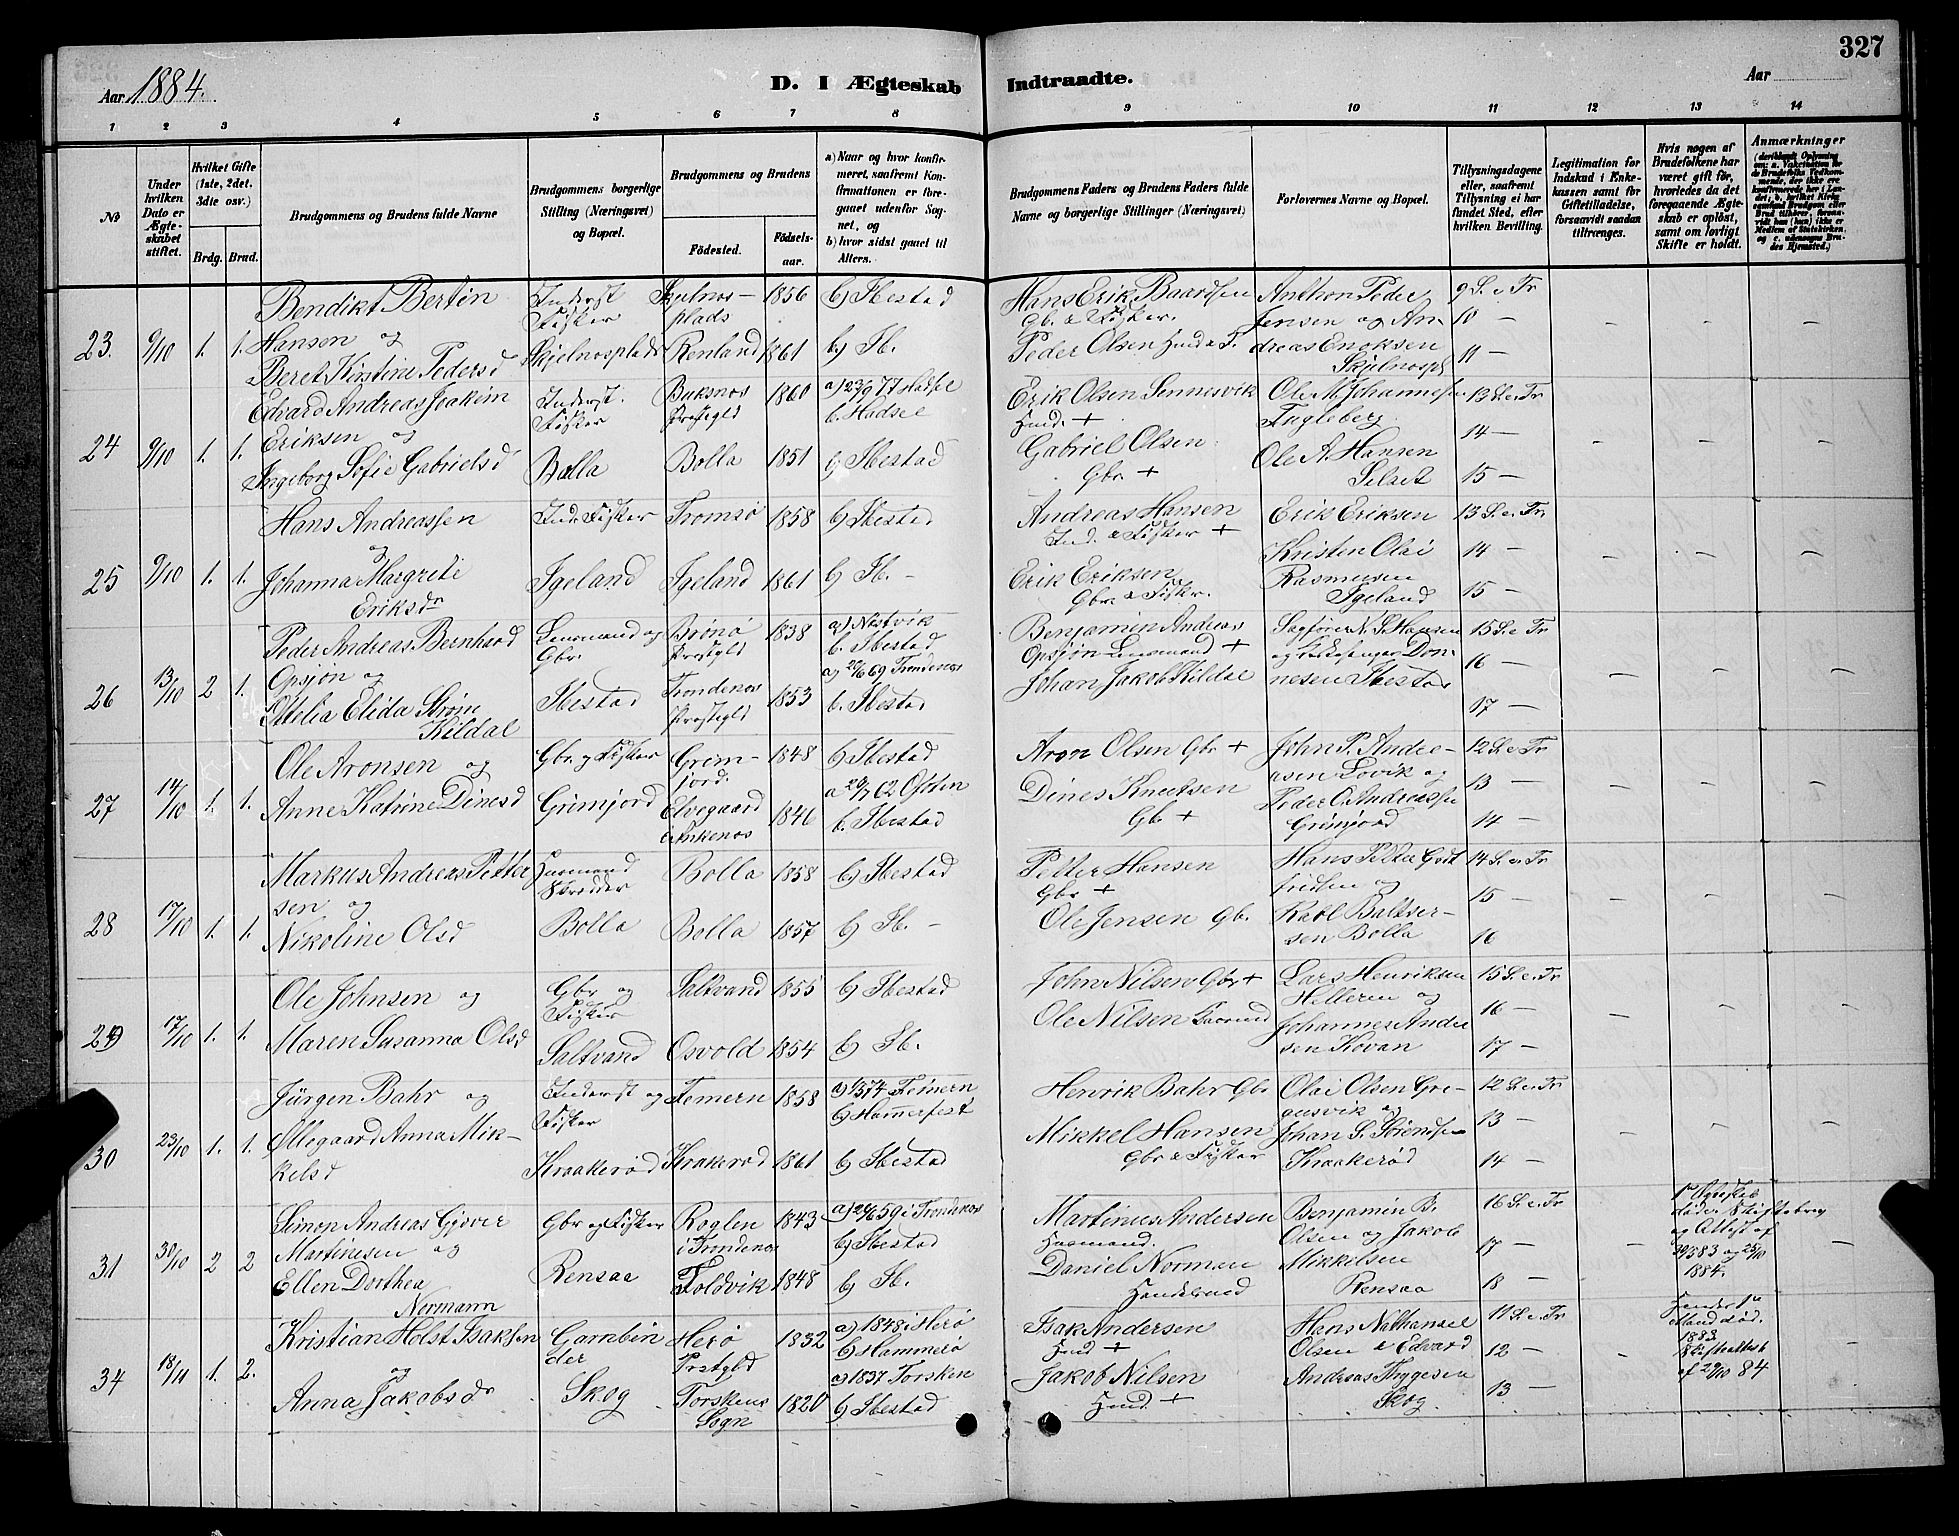 327
Aar 1884.
D. I Ægteskab Indtraadte.
Aar
1 2 3 4 5 6 7 8 9 10 11 12 13 14
№
Under hvilken Dato er Ægteskabet stiftet.
Hvilket Gifte (1ste, 2det. 3die osv.)
Brdg. Brud.
Brudgommens og Brudens fulde Navne
Brudgommens borgerlige Stilling (Næringsvei) og Bopæl.
Brudgommens og Brudens
Fødested. Fødsels-aar.
a) Naar og hvor konfirmeret, saafremt Konfirmationen er foregaaet udenfor Sognet, og
b) hvor sidst gaaet til Alters.
Brudgommens Faders og Brudens Faders fulde Navne og borgerlige Stillinger (Næringsvei)
Forlovernes Navne og Bopæl.
Tillysningsdagene eller, saafremt Tillysning ei har fundet Sted, efter hvilken Bevilling.
Legitimation for Indskud i Enkekassen samt for Giftetilladelse, forsaavidt saadan tiltrænges.
Hvis nogen af Brudefolkene har været gift før, hvorledes da det foregaaende Ægteskab er opløst, samt om lovligt Skifte er holdt.
Anmærkninger
23. 9/10 1. 1.
Bendikt Bertin Hansen og
Beret Kirstine Pedersd
Inderst Fisker
Skjelnosplads
Skjelnosplads 1856 b) Ibestad
Renland 1861 b) Ib.
Hans Erik Baardsen Gb. & Fisker.
Peder Olsen Husd & F.
Anthon Peder Jensen og Andreas Enoksen Skjelnospl
9 S. e. Tr
10 —
11 —
24 9/10 1. 1.
Edvard Andreas Joakim Eriksen og
Ingeborg Sofie Gabrielsd
Inderst. Fisker
Bolla
Buksnos Prestegld 1860 a) 23/9 77 Hadsel b. Hadsel
Bolla 1851 b) Ibestad
Erik Olsen Sennesvik Husd. +
Gabriel Olsen Gbr. +
Ole M. Johannesen Fugleberg
Ole A. Hansen Selset
13 S. e. Tr
14 —
15 —
25 9/10 1. 1.
Hans Andreassen og
Johanna Margrete Eriksdr
Ind. Fisker
Igeland
Tromsø 1858 b) Ibestad
Igeland 1861 b) Ib. —
Andreas Hansen Ind. & Fisker +
Erik Eriksen Gbr. & Fiskr.
Erik Eriksen
Kristen Olai Rasmusen Igeland
13 S. e. Tr.
14 —
15 —
26 13/10 2 1.
Peder Andreas Bernhard Opsjøn og
Otelia Elida Strøm Kildal
Lensmand og Gbr.
Ibestad
Brønø Prestegld 1838 b. Ibestad
Trondenes Prestegld 1853 Trondenes b. Ibestad
Benjamin Andreas Opsjøn Lensmand +
Johan Jakob Kildal
Sagfører N. S. Hansen og Kirkesanger Donnesen Ibestad
15 S. e. Tr
16 —
17 —
27 14/10 1. 1.
Ole Aronsen og
Anne Katrine Dinesd
Gbr. og Fisker
Grimjord
Grimjord. 1848 b) Ibestad
Elvegaard i Ankenos 1846 Ofoten b. Ibestad
Aron Olsen Gbr +
Dines Knutsen Gb +
John P. Andreasen Lovik og
Peder O. Andreassen Grimjord
12 S. e. Tr
13 —
14 —
28 17/10 1. 1.
Markus Andreas Pettersen og
Nikoline Olsd
Husmand Skredder
Bolla
Bolla 1858 b) Ibestad
Bolla 1857 b) Ib. —
Petter Hansen Gbr +
Ole Jensen Gb.
Hans Petter Godtfridsen og
Karl Baltsersen Bolla
14 S. e. Tr
15 —
16
29 17/10 1. 1.
Ole Johnsen og
Maren Susanna Olsd
Gbr og Fisker
Saltvand
Saltvand 1855 b) Ibestad
Osvold 1854 b) Ib.
John Nilsen Gbr +
Ole Nilsen
Lars Henriksen Helleren og
Johannes Andersen Kovan
15 S. e. Tr
16 —
17 —
30 23/10 1. 1.
Jürgen Bahr og
Øllegaard Anna Mikkelsd
Inderst og Fisker
Kraakerød
Femern 1858 Femern b) Hammerfest
Kraakerød 1861 b) Ibestad
Henrik Bahr Gbr
Mikkel Hansen Gbr & Fisker
Olai Olsen Gregusvik og
Johan S. Sørensen Kraakerød
12 S. e. Tr
13 —
14 —
31 30/10 2 2
Simon Andreas Gjøver Martinesen og
Ellen Dorthea Normann
Gbr og Fisker
Rensaa
Roglen i Trondenes 1843 i Trondenes b) Ibestad
Foldvik 1848 b) Ib.
Martinus Andersen Husmand.
Daniel Norman Handelsmd
Benjamin B. Olsen og Jakob Mikkelsen Rensaa
16 S. e. Tr
17 —
18 —
og Attest af 83 og 25/10 1884.
34 18/11 1. 2.
Kristian Holst Isaksen og
Anna Jakobsdr
Garnbinder
Skog
Herø Prstgld 1832 a) 1848 i Herø b) Hammerø
Torskens Sogn 1820 a) 1837 Torsken b) Ibestad
Isak Andersen Husd +
Jakob Nilsen Husd. +
Hans Nathanael Olsen & Edvard Andreas Thygesen Skog
11 S. e. Tr
12 —
13 —
Hendes 1ste Mand død. 1883. Skifteattest af 29/10 84